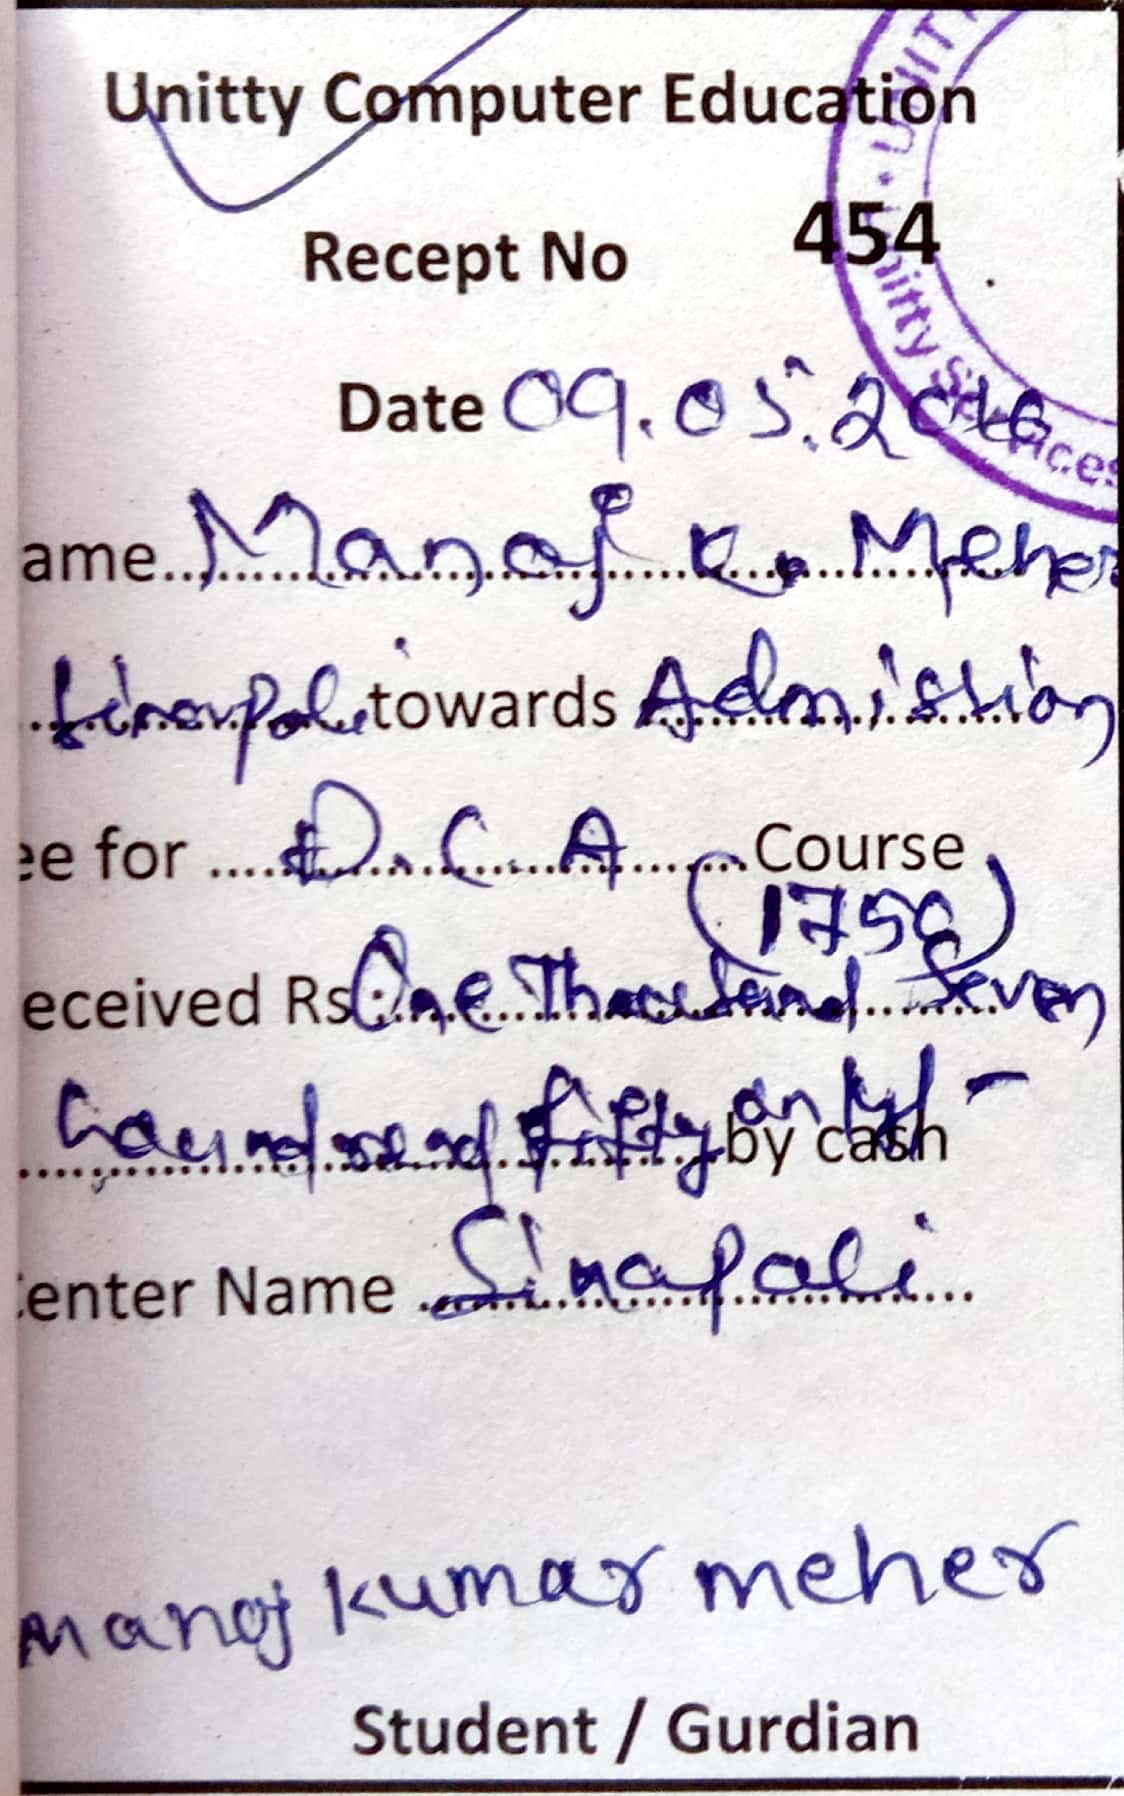 Unitty Computer Education
Recept No 454
Date 09.05.2016
ame Manoj K. Meher
Sinapali towards Admission
ee for D.C.A Course
(1750)
eceived Rs. One Thousand Seven
houndread fifty only/- by cash
Center Name Sinapali
Manoj kumar meher
Student / Gurdian
UNITT
Unitty Services